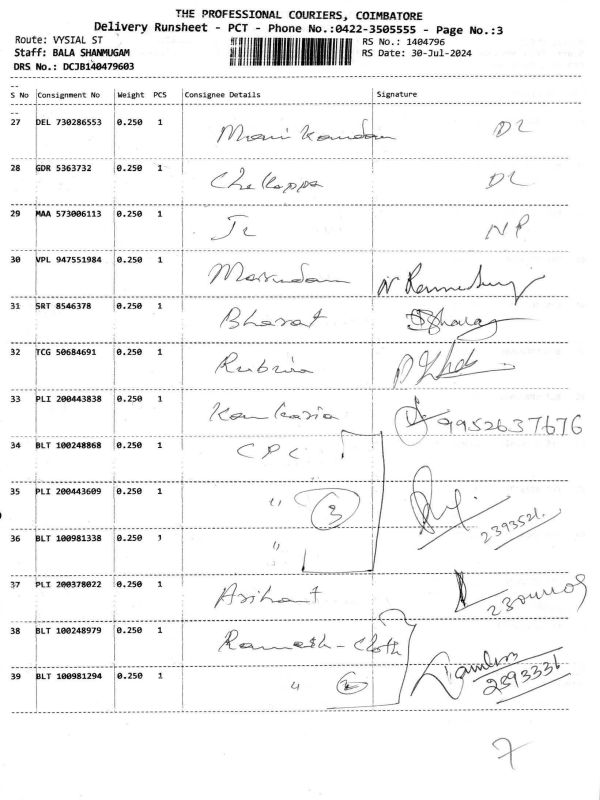 THE PROFESSIONAL COURIERS, COIMBATORE
Delivery Runsheet - PCT - Phone No.:0422-3505555 - Page No.:3
Route: VYSIAL ST RS No.: 1404796
Staff: BALA SHANMUGAM RS Date: 30-Jul-2024
DRS No.: DCJB140479603
S No Consignment No Weight PCS Consignee Details Signature
27 DEL 730286553 0.250 1 Mani Kandan DL
28 GDR 5363732 0.250 1 Chellappa DL
29 MAA 573006113 0.250 1 NP
30 VPL 947551984 0.250 1
31 SRT 8546378 0.250 1 Bharat
32 TCG 50684691 0.250 1
33 PLI 200443838 0.250 1 Kankaria 9952637676
34 BLT 100248868 0.250 1 CPC
35 PLI 200443609 0.250 1 " 3 2393521
36 BLT 100981338 0.250 1 "
37 PLI 200378022 0.250 1 Arihant
38 BLT 100248979 0.250 1 Ramesh-Cloth
39 BLT 100981294 0.250 1 " 2 2393331
7